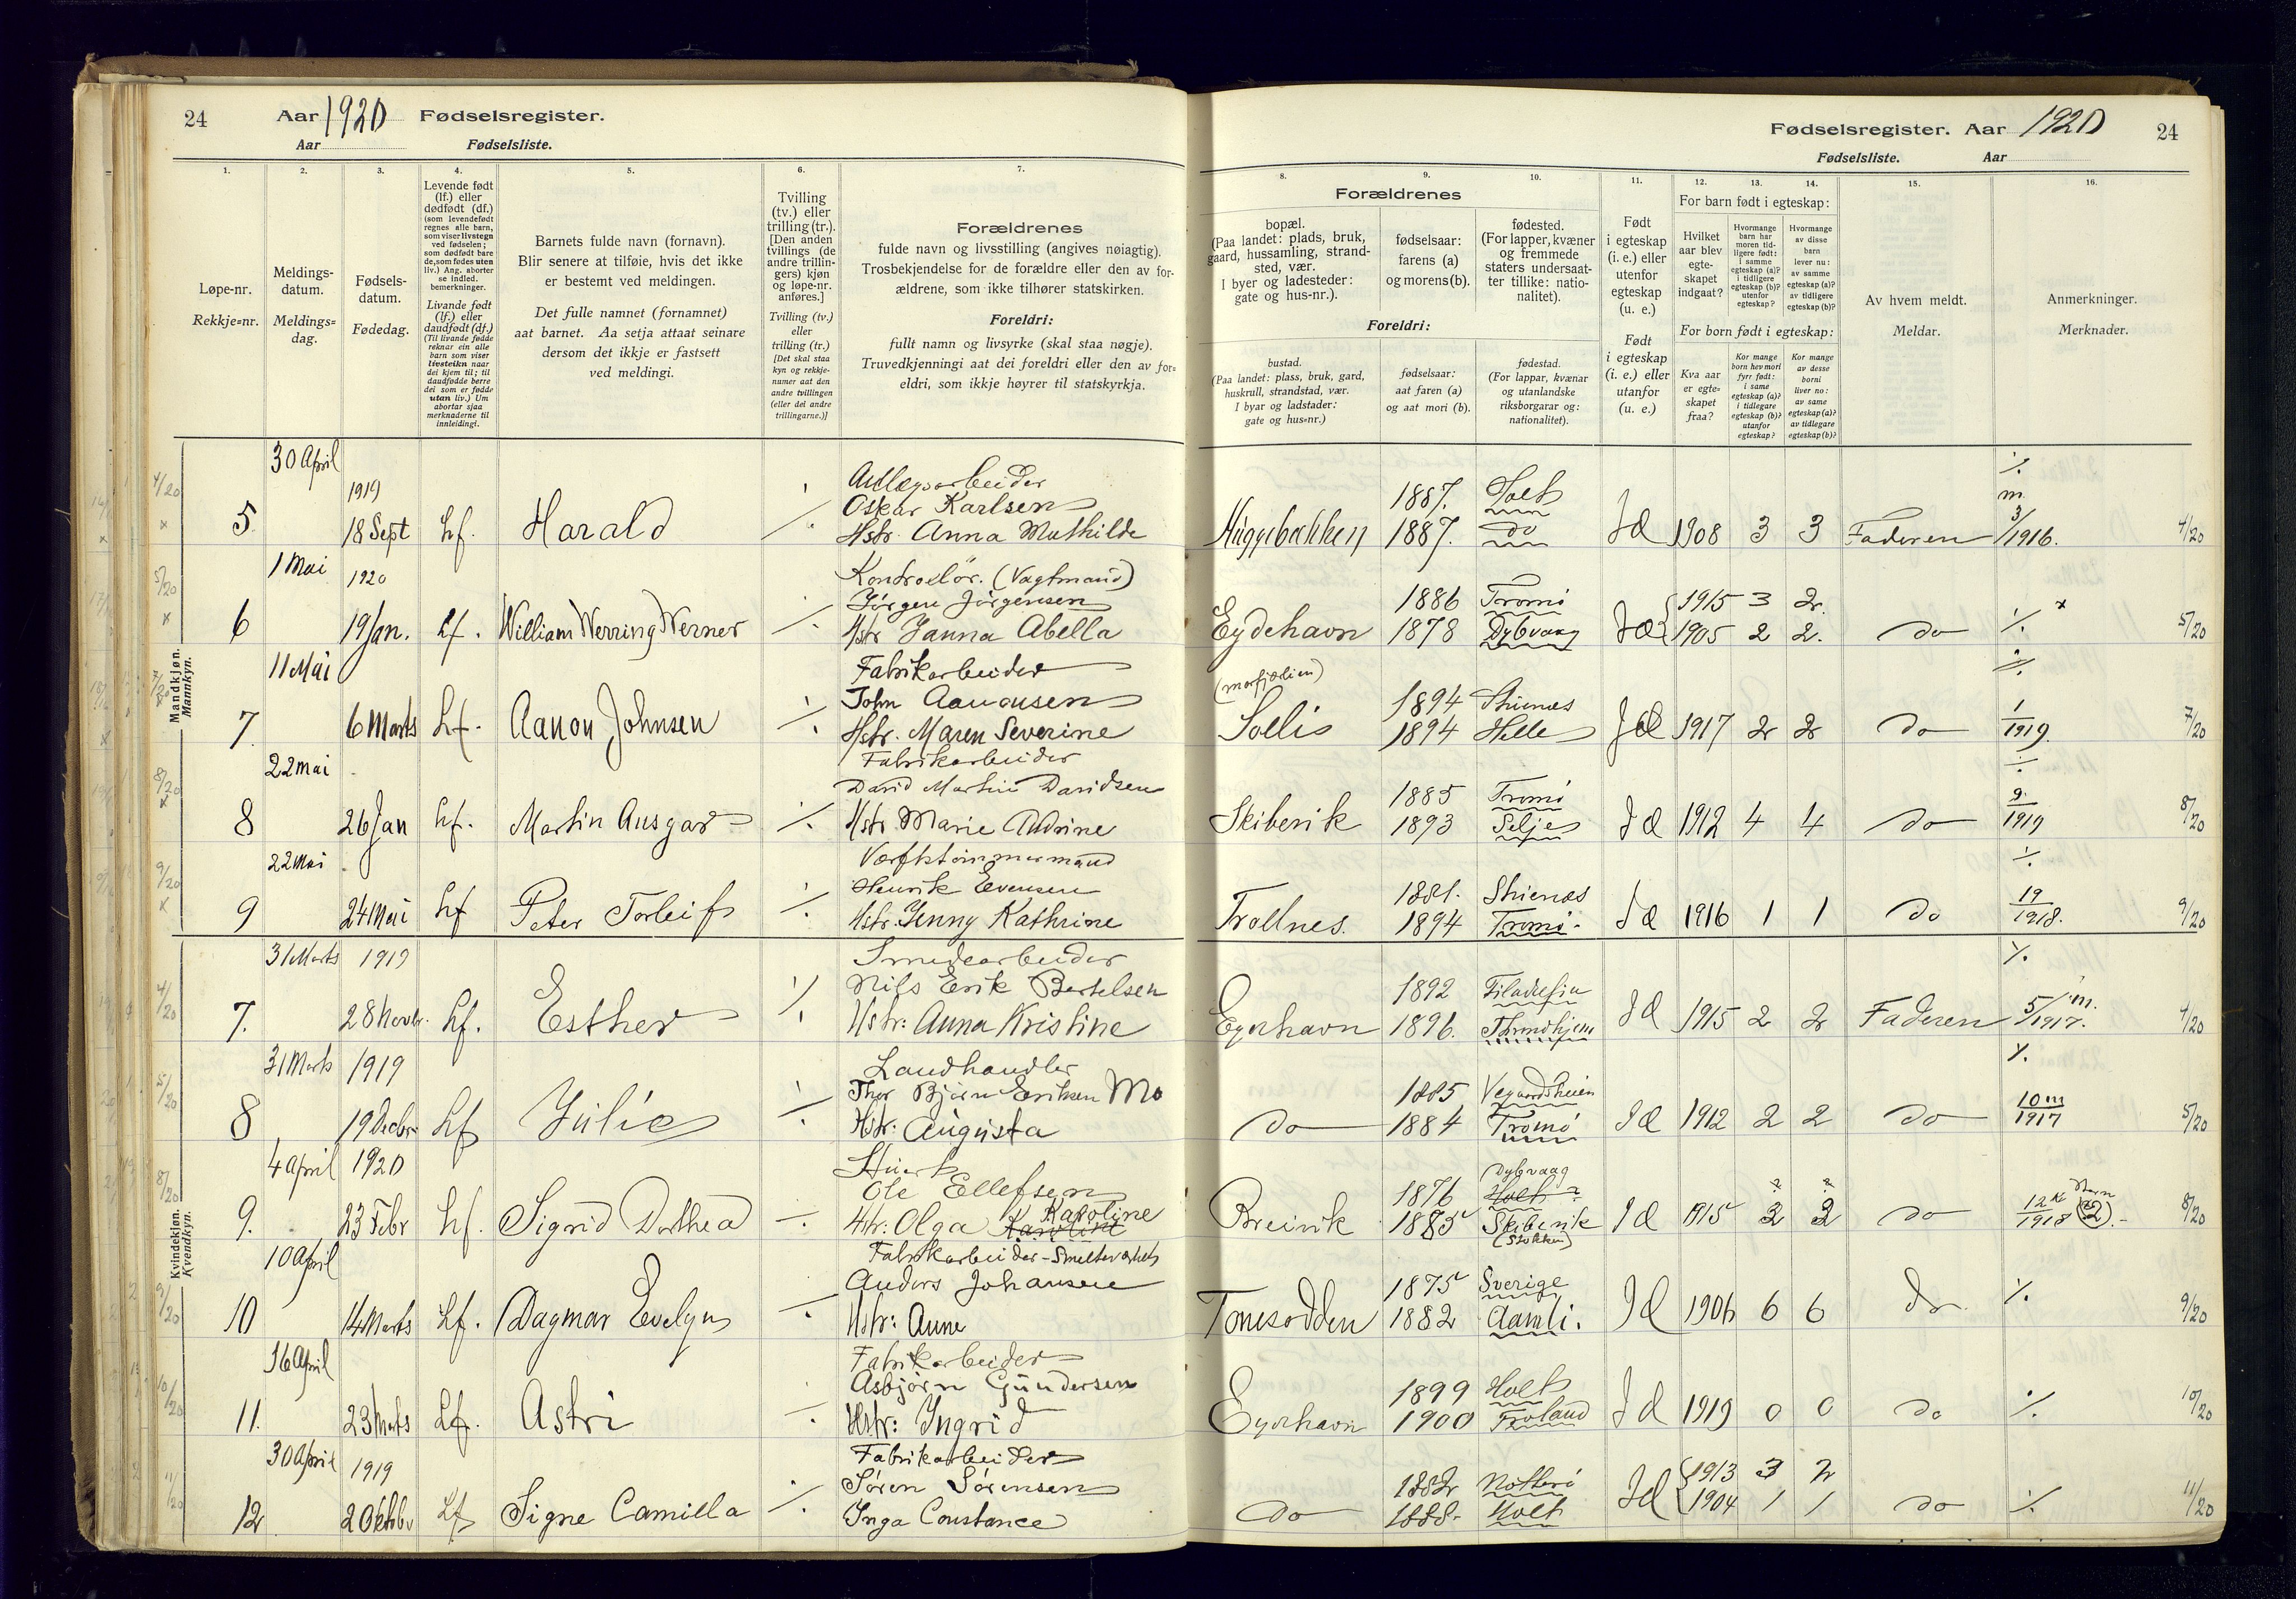 24
Aar 1920 Fødselsregister.
Aar Fødselsliste.
1.
2.
3.
4.
5.
6.
7.
Løpe-nr.
Rekkje=nr.
Meldings-
datum.
Meldings=
dag.
Fødsels-
datum.
Fødedag.
Levende født
(lf.) eller
dødfødt (df.)
(som levendefødt
regnes alle barn,
som viser livstegn
ved fødselen;
som dødfødt bare
de, som fødes uten
liv.) Ang. aborter
se indled.
bemerkninger.
Livande født
(lf.) eller
daudfødt (df.)
(Til livande fødde
reknar ein alle
barn som viser
livsteikn naar
dei kjem til; til
daudfødde berre
dei som er fødde
utan liv.) Um
abortar sjaa
merknaderne til
innleidingi.
Barnets fulde navn (fornavn).
Blir senere at tilføie, hvis det ikke
er bestemt ved meldingen.
Det fulle namnet (fornamnet)
aat barnet. Aa setja attaat seinare
dersom det ikkje er fastsett
ved meldingi.
Tvilling
(tv.) eller
trilling (tr.).
[Den anden
tvillings (de
andre trillin-
gers) kjøn
og løpe-nr.
anføres.]
Tvilling (tv.)
eller
trilling (tr.)
[Det skal staa
kyn og rekkje-
numer aat den
andre tvillingen
(eller dei andre
trillingarne.)]
Forældrenes
fulde navn og livsstilling (angives nøiagtig).
Trosbekjendelse for de forældre eller den av for-
ældrene, som ikke tilhører statskirken.
Foreldri:
fullt namn og livsyrke (skal staa nøgje).
Truvedkjenningi aat dei foreldri eller den av for=
eldri, som ikkje høyrer til statskyrkja.
Fødselsregister. Aar 1920
24
Fødselsliste. Aar
8.
9.
10.
11.
12.
13.
14.
15.
16.
Forældrenes
bopæl.
(Paa landet: plads, bruk,
gaard, hussamling, strand-
sted, vær.
I byer og ladesteder:
gate og hus-nr.).
fødselsaar:
farens (a)
og morens (b).
fødested.
(For lapper, kvæner
og fremmede
staters undersaat-
ter tillike: natio-
nalitet).
Foreldri:
bustad.
(Paa landet: plass, bruk, gard,
huskrull, strandstad, vær.
I byar og ladstader:
gate og hus=nr.)
fødselsaar:
aat faren (a)
og aat mori (b).
fødestad.
(For lappar, kvænar
og utanlandske
riksborgarar og:
nationalitet).
Født
i egteskap
(i. e.) eller
utenfor
egteskap
(u. e.)
Født
i egteskap
(i. e.) eller
utanfor
(u. e.)
For barn født i egteskap:
Hvilket
aar blev
egte-
skapet
indgaat?
Hvormange
barn har
moren tid-
ligere født:
i samme
egteskap (a)?
i tidligere
egteskap (b)?
utenfor
egteskap?
Hvormange
av disse
barn
lever nu:
av samme
egteskap (a)?
av tidligere
egteskap (b)?
For born født i egteskap:
Kva aar
er egte-
skapet
fraa?
Kor mange
born hev mori
fyrr født:
i same
egteskap (a)?
i tidlegare
egteskap (b)?
utanfor
egteskap?
Kor mange
av desse
borni
liver no:
av same
egteskap (a)?
av tidlegare
egteskap (b)?
Av hvem meldt.
Meldar.
Anmerkninger.
Merknader.
Mandkjøn.
Mannkyn.
30 April
1919
5. 18 Sept Lf. Harald
Oskar Karlsen
Hstr. Anna Mathilde
1887. Holt
1887. do
1908 3 3 Faderen
3/1916.
4/20
1 Mai
1920
Kontrollør. (Vagtmand)
Jørgen Jørgensen
6 19 Jan. Lf. William Werring Werner
Hstr Janna Abella
1886 Tromø 1915 3 2.
Eydehavn 1878 Dybvaag 1905 2 2. do
5/20
11 Mai
Fabrikarbeider
John Aanonsen
7. 6 Marts Lf. Aanon Johnsen
Hstr. Maren Severine
1894
Sollis 1894 Helle 1917 2 2 do
1/1919.
7/20
22 Mai
Fabrikarbeider
David Martin Davidsen
8 26 Jan Lf. Martin Ansgar
Hstr Marie Andrine
1885 Tromø
1893 Selje 1912 4 4 do
9/1919
8/20
22 Mai
Værftstømmermand
Henrik Evensen
9 24 Mai Lf Peter Torleif
Hstr. Jenny Kathrine
1881.
Trollnes. 1894 Tromø. 1916 1 1 do
19/1918.
9/20
Kvindekjøn.
Kvendkyn.
31 Marts 1919
Smedearbeider
Nils Erik Bertelsen
7. 28 Novbr. Lf. Esther
Hstr: Anna Kristine
1892 Filadelfia
1896. Throndhjem 1915 2 2 Faderen
5/1917. m.
4/20
31 Marts 1919
Landhandler
Thor Bjørn Eriksen Mo
8 19 Decbr. Lf Julie
Hstr: Augusta
1885 Vegardsheien
do 1884 Tromø 1912 2 2 do
10 m/1917
5/20
4 April 1920
Ole Ellefsen
9. 23 Febr Lf. Sigrid Dorthea
Hstr: Olga Karoline
Dybvaag
1876 Holt ?
Breivik 1885 Skibevik
(Stokken)
1915 do
12 K/1918
8/20
10 April
Fabrikarbeider - Smelteverket
Anders Johansen
10 14 Marts Lf. Dagmar Evelyn
Hstr: Anne
1875 Sverige
1882 Aamli. 1906 6 6 do
9/20
16 April
Fabrikarbeider
Asbjørn Gundersen
11. 23 Marts Lf. Astri
Hstr: Ingrid
1899 Holt
1900 Froland 1919 0 0 do
10/20
30 April
1919
Fabrikarbeider
Søren Sørensen
12 2 Oktbr Lf Signe Camilla
Inga Constance
1882 Nøtterø 1913 3 2
do 1888. Holt 1904 1 1 do
11/20